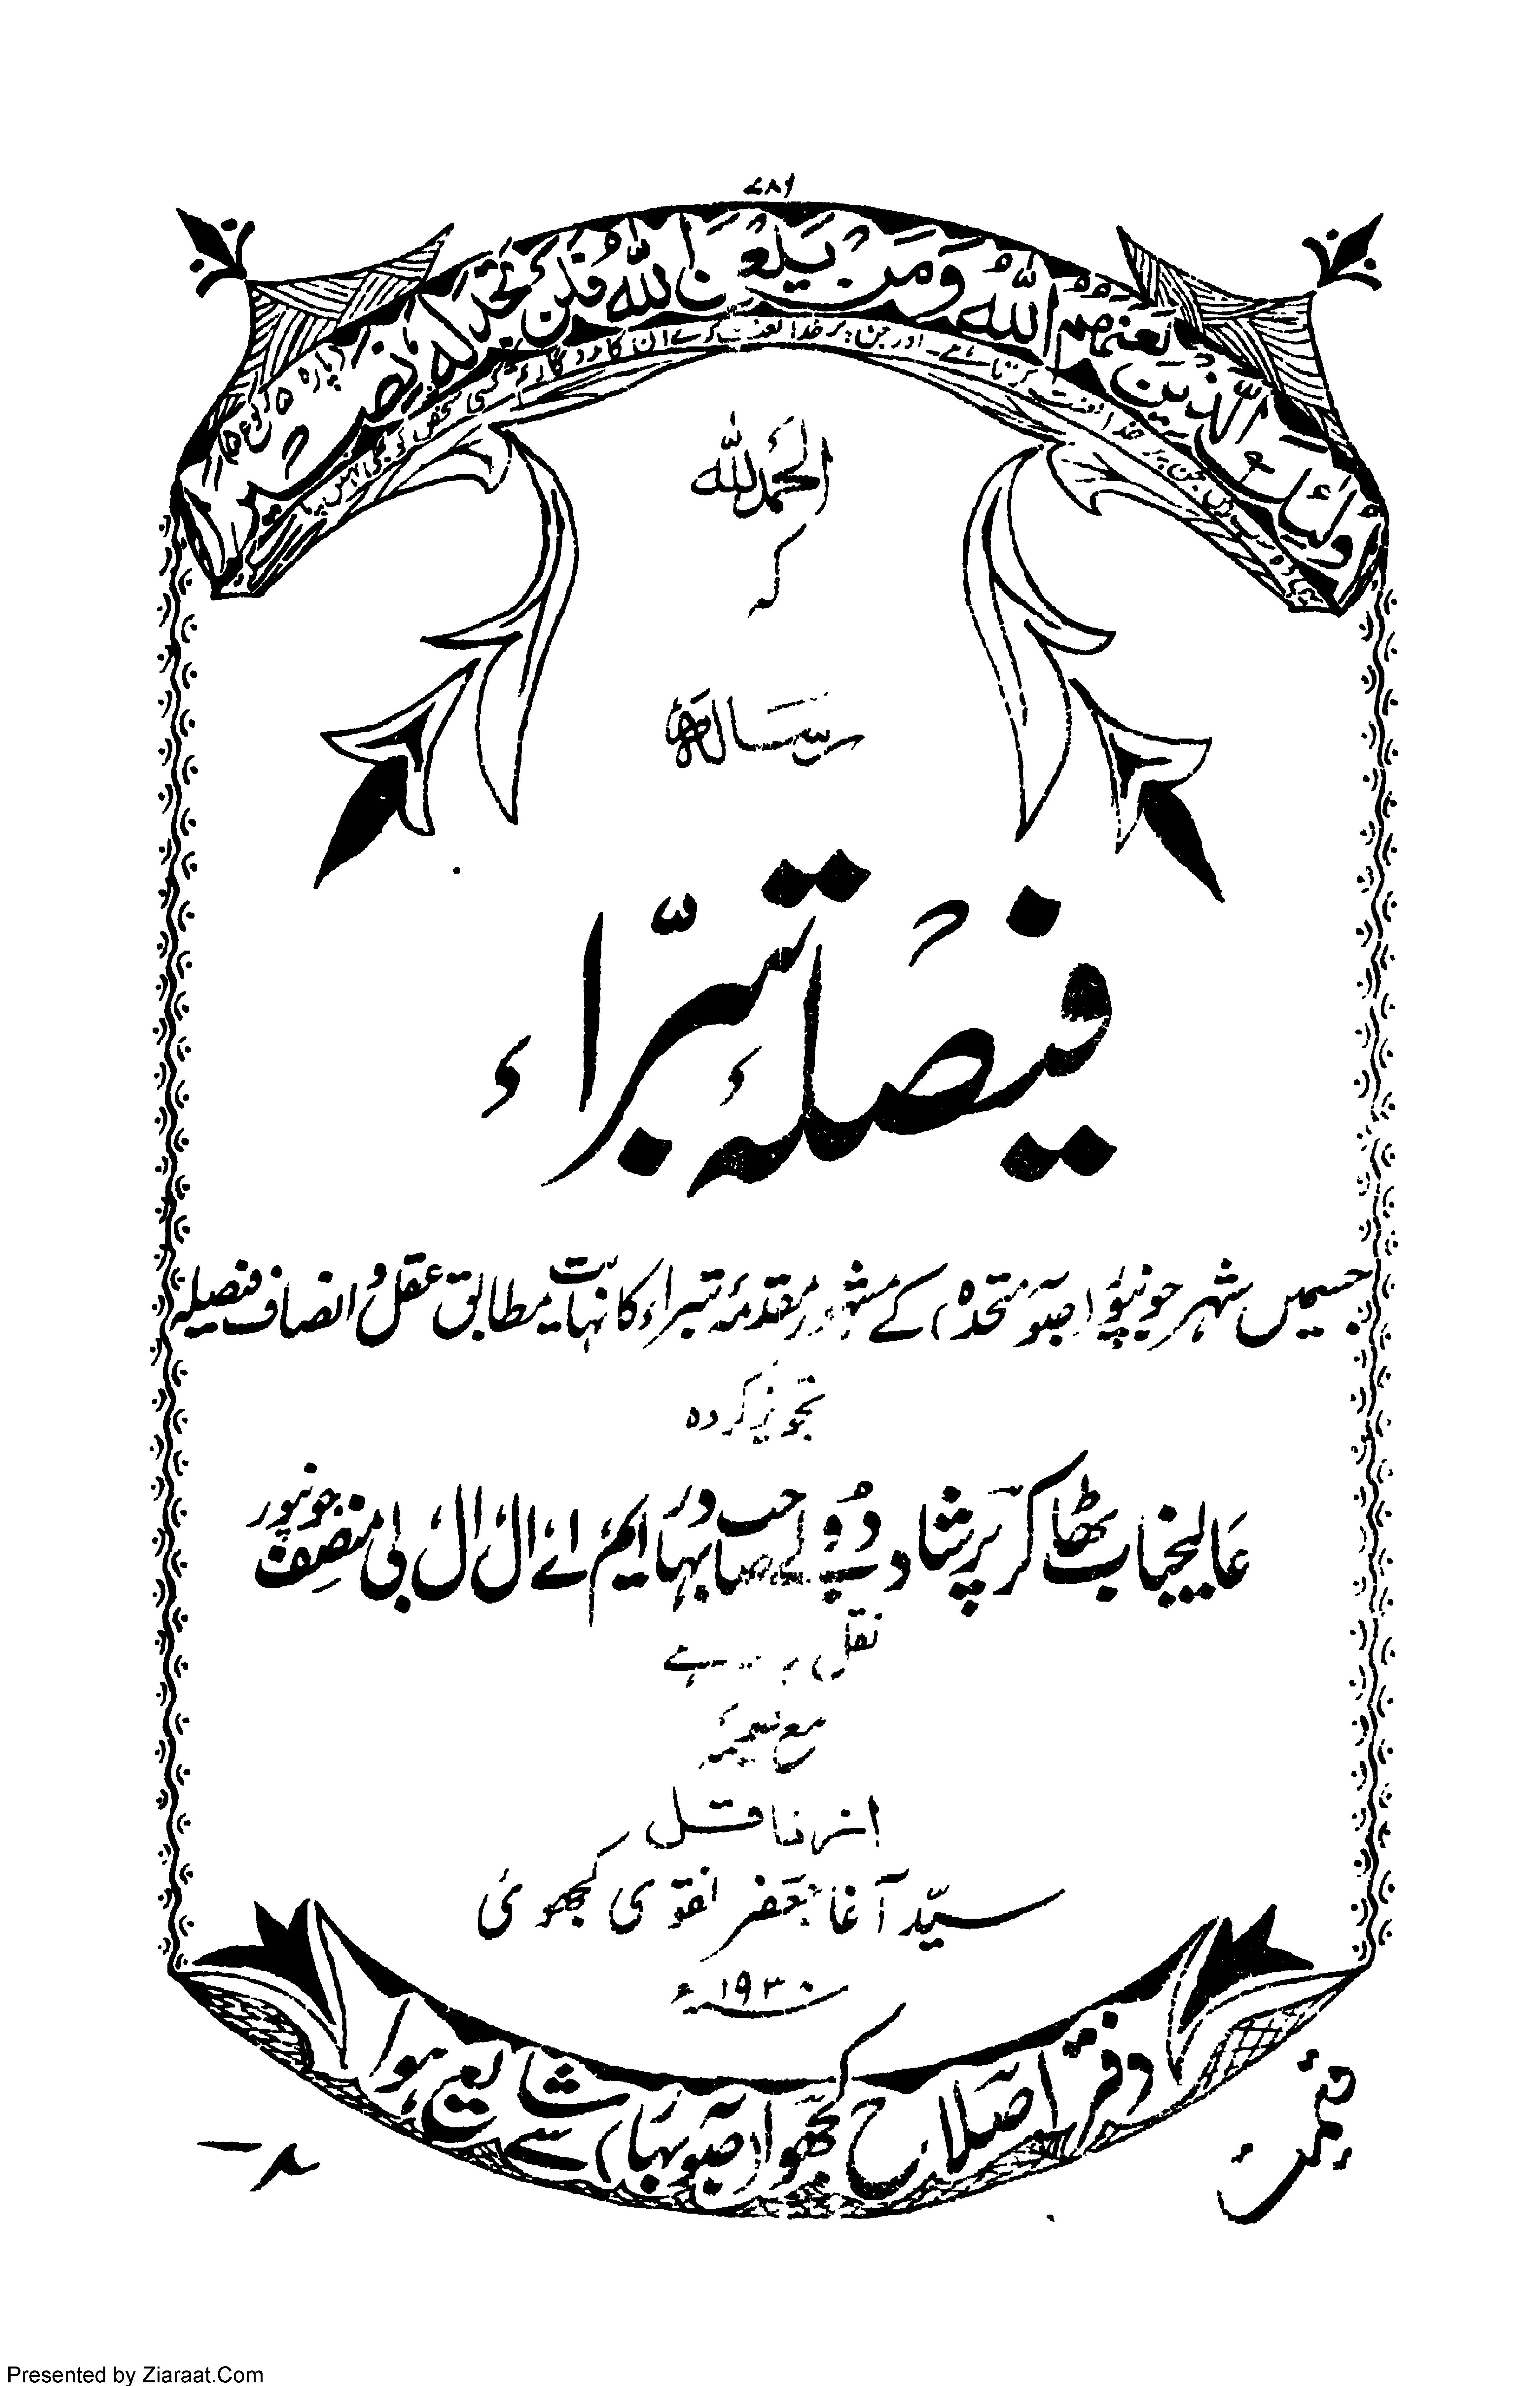 ۷۸۶
اولٰئک الذین لعنھم اللہ ومن یلعن اللہ فلن تجد لہ نصیرا پارہ ۵ رکوع ۵
جن پر خدا لعنت کرتا ہے۔ اور جن پر خدا لعنت کرے ان کا مددگار کسی شخص کو بھی
الحمدللہ
کہ
رسالہ
فیصلہٴ تبرّاء
جسمیں شہر جونپور (صوبہ متحدہ) کے مشہور مقدمۂ تبراء کا نہایت مطابق عقل و انصاف فیصلہ
تجویز کردہ
عالیجناب ٹھاکر پرشاد دوبے صاحب بہادر ایم اے ال ال بی منصف جونپور
نقل ہے
مع ضمیمہ
از ناقل
سیّد آغا جعفر نقوی کھجوی
۱۹۳۰ء
دفتر اصلاح کھجوا (صوبہ بہار) سے شایع ہوا
قیمت
۸؍
Presented by Ziaraat.Com